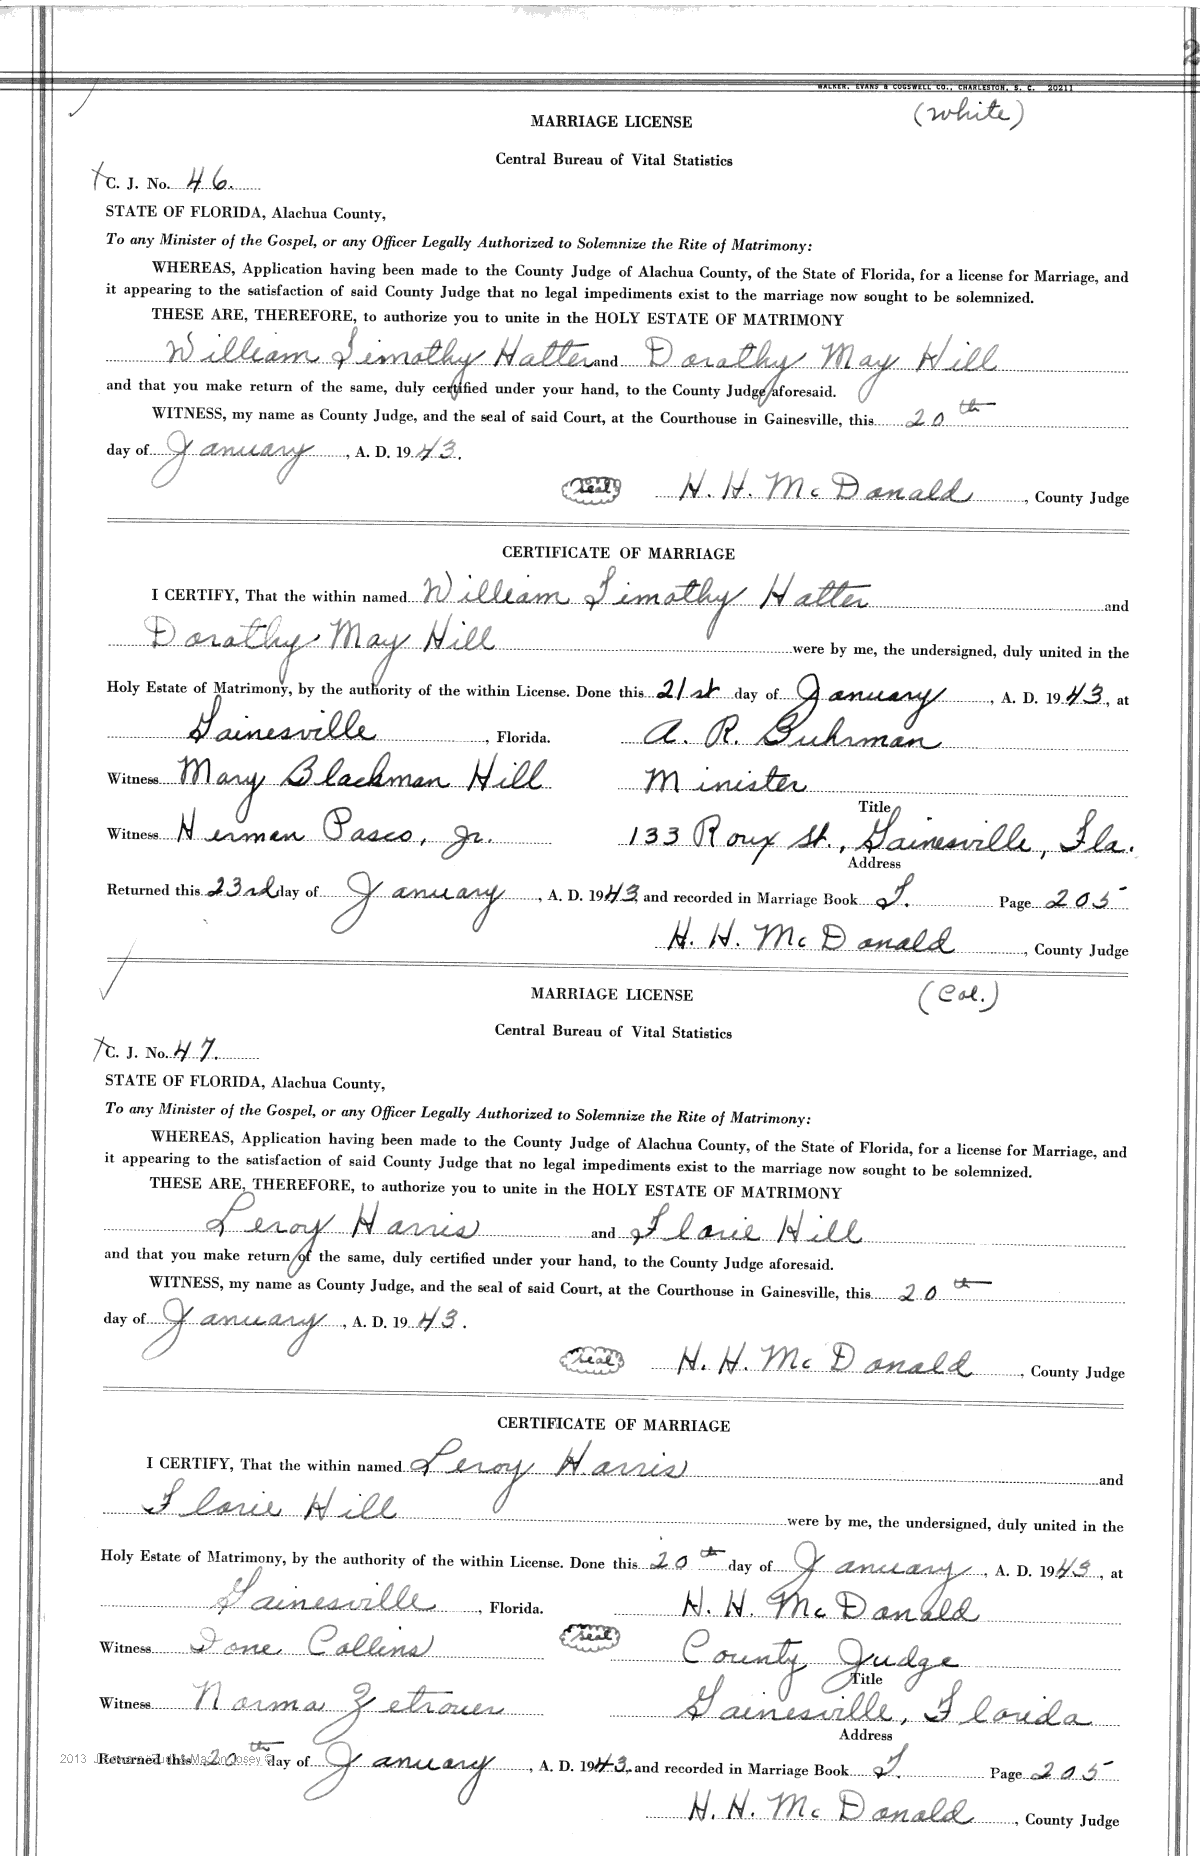 2
WALKER, EVANS & COGSWELL CO., CHARLESTON, S. C. 20211
(White)
MARRIAGE LICENSE
Central Bureau of Vital Statistics
C. J. No. 46.
STATE OF FLORIDA, Alachua County,
To any Minister of the Gospel, or any Officer Legally Authorized to Solemnize the Rite of Matrimony:
WHEREAS, Application having been made to the County Judge of Alachua County, of the State of Florida, for a license for Marriage, and
it appearing to the satisfaction of said County Judge that no legal impediments exist to the marriage now sought to be solemnized.
THESE ARE, THEREFORE, to authorize you to unite in the HOLY ESTATE OF MATRIMONY
William Timothy Hatter and Dorathy May Hill
and that you make return of the same, duly certified under your hand, to the County Judge aforesaid.
WITNESS, my name as County Judge, and the seal of said Court, at the Courthouse in Gainesville, this 20th
day of January, A. D. 1943.
Seal H. H. McDonald, County Judge
CERTIFICATE OF MARRIAGE
I CERTIFY, That the within named William Timothy Hatter and
Dorathy May Hill were by me, the undersigned, duly united in the
Holy Estate of Matrimony, by the authority of the within License. Done this 21st day of January, A. D. 1943, at
Gainesville, Florida. A. R. Buhrman
Witness Mary Blackman Hill Minister
Title
Witness Herman Pasco, Jr. 133 Roux St., Gainesville, Fla.
Address
Returned this 23rd day of January, A. D. 1943 and recorded in Marriage Book T. Page 205
H. H. McDonald, County Judge
MARRIAGE LICENSE (Col.)
Central Bureau of Vital Statistics
C. J. No. 47.
STATE OF FLORIDA, Alachua County,
To any Minister of the Gospel, or any Officer Legally Authorized to Solemnize the Rite of Matrimony:
WHEREAS, Application having been made to the County Judge of Alachua County, of the State of Florida, for a license for Marriage, and
it appearing to the satisfaction of said County Judge that no legal impediments exist to the marriage now sought to be solemnized.
THESE ARE, THEREFORE, to authorize you to unite in the HOLY ESTATE OF MATRIMONY
Leroy Harris and Florie Hill
and that you make return of the same, duly certified under your hand, to the County Judge aforesaid.
WITNESS, my name as County Judge, and the seal of said Court, at the Courthouse in Gainesville, this 20th
day of January, A. D. 1943.
Seal H. H. McDonald, County Judge
CERTIFICATE OF MARRIAGE
I CERTIFY, That the within named Leroy Harris and
Florie Hill were by me, the undersigned, duly united in the
Holy Estate of Matrimony, by the authority of the within License. Done this 20th day of January, A. D. 1943, at
Gainesville, Florida. H. H. McDonald
Witness Ione Collins Seal County Judge
Title
Witness Norma Zetrouer Gainesville, Florida
Address
2013 Josey ©
Returned this 20th day of January, A. D. 1943, and recorded in Marriage Book T. Page 205
H. H. McDonald, County Judge